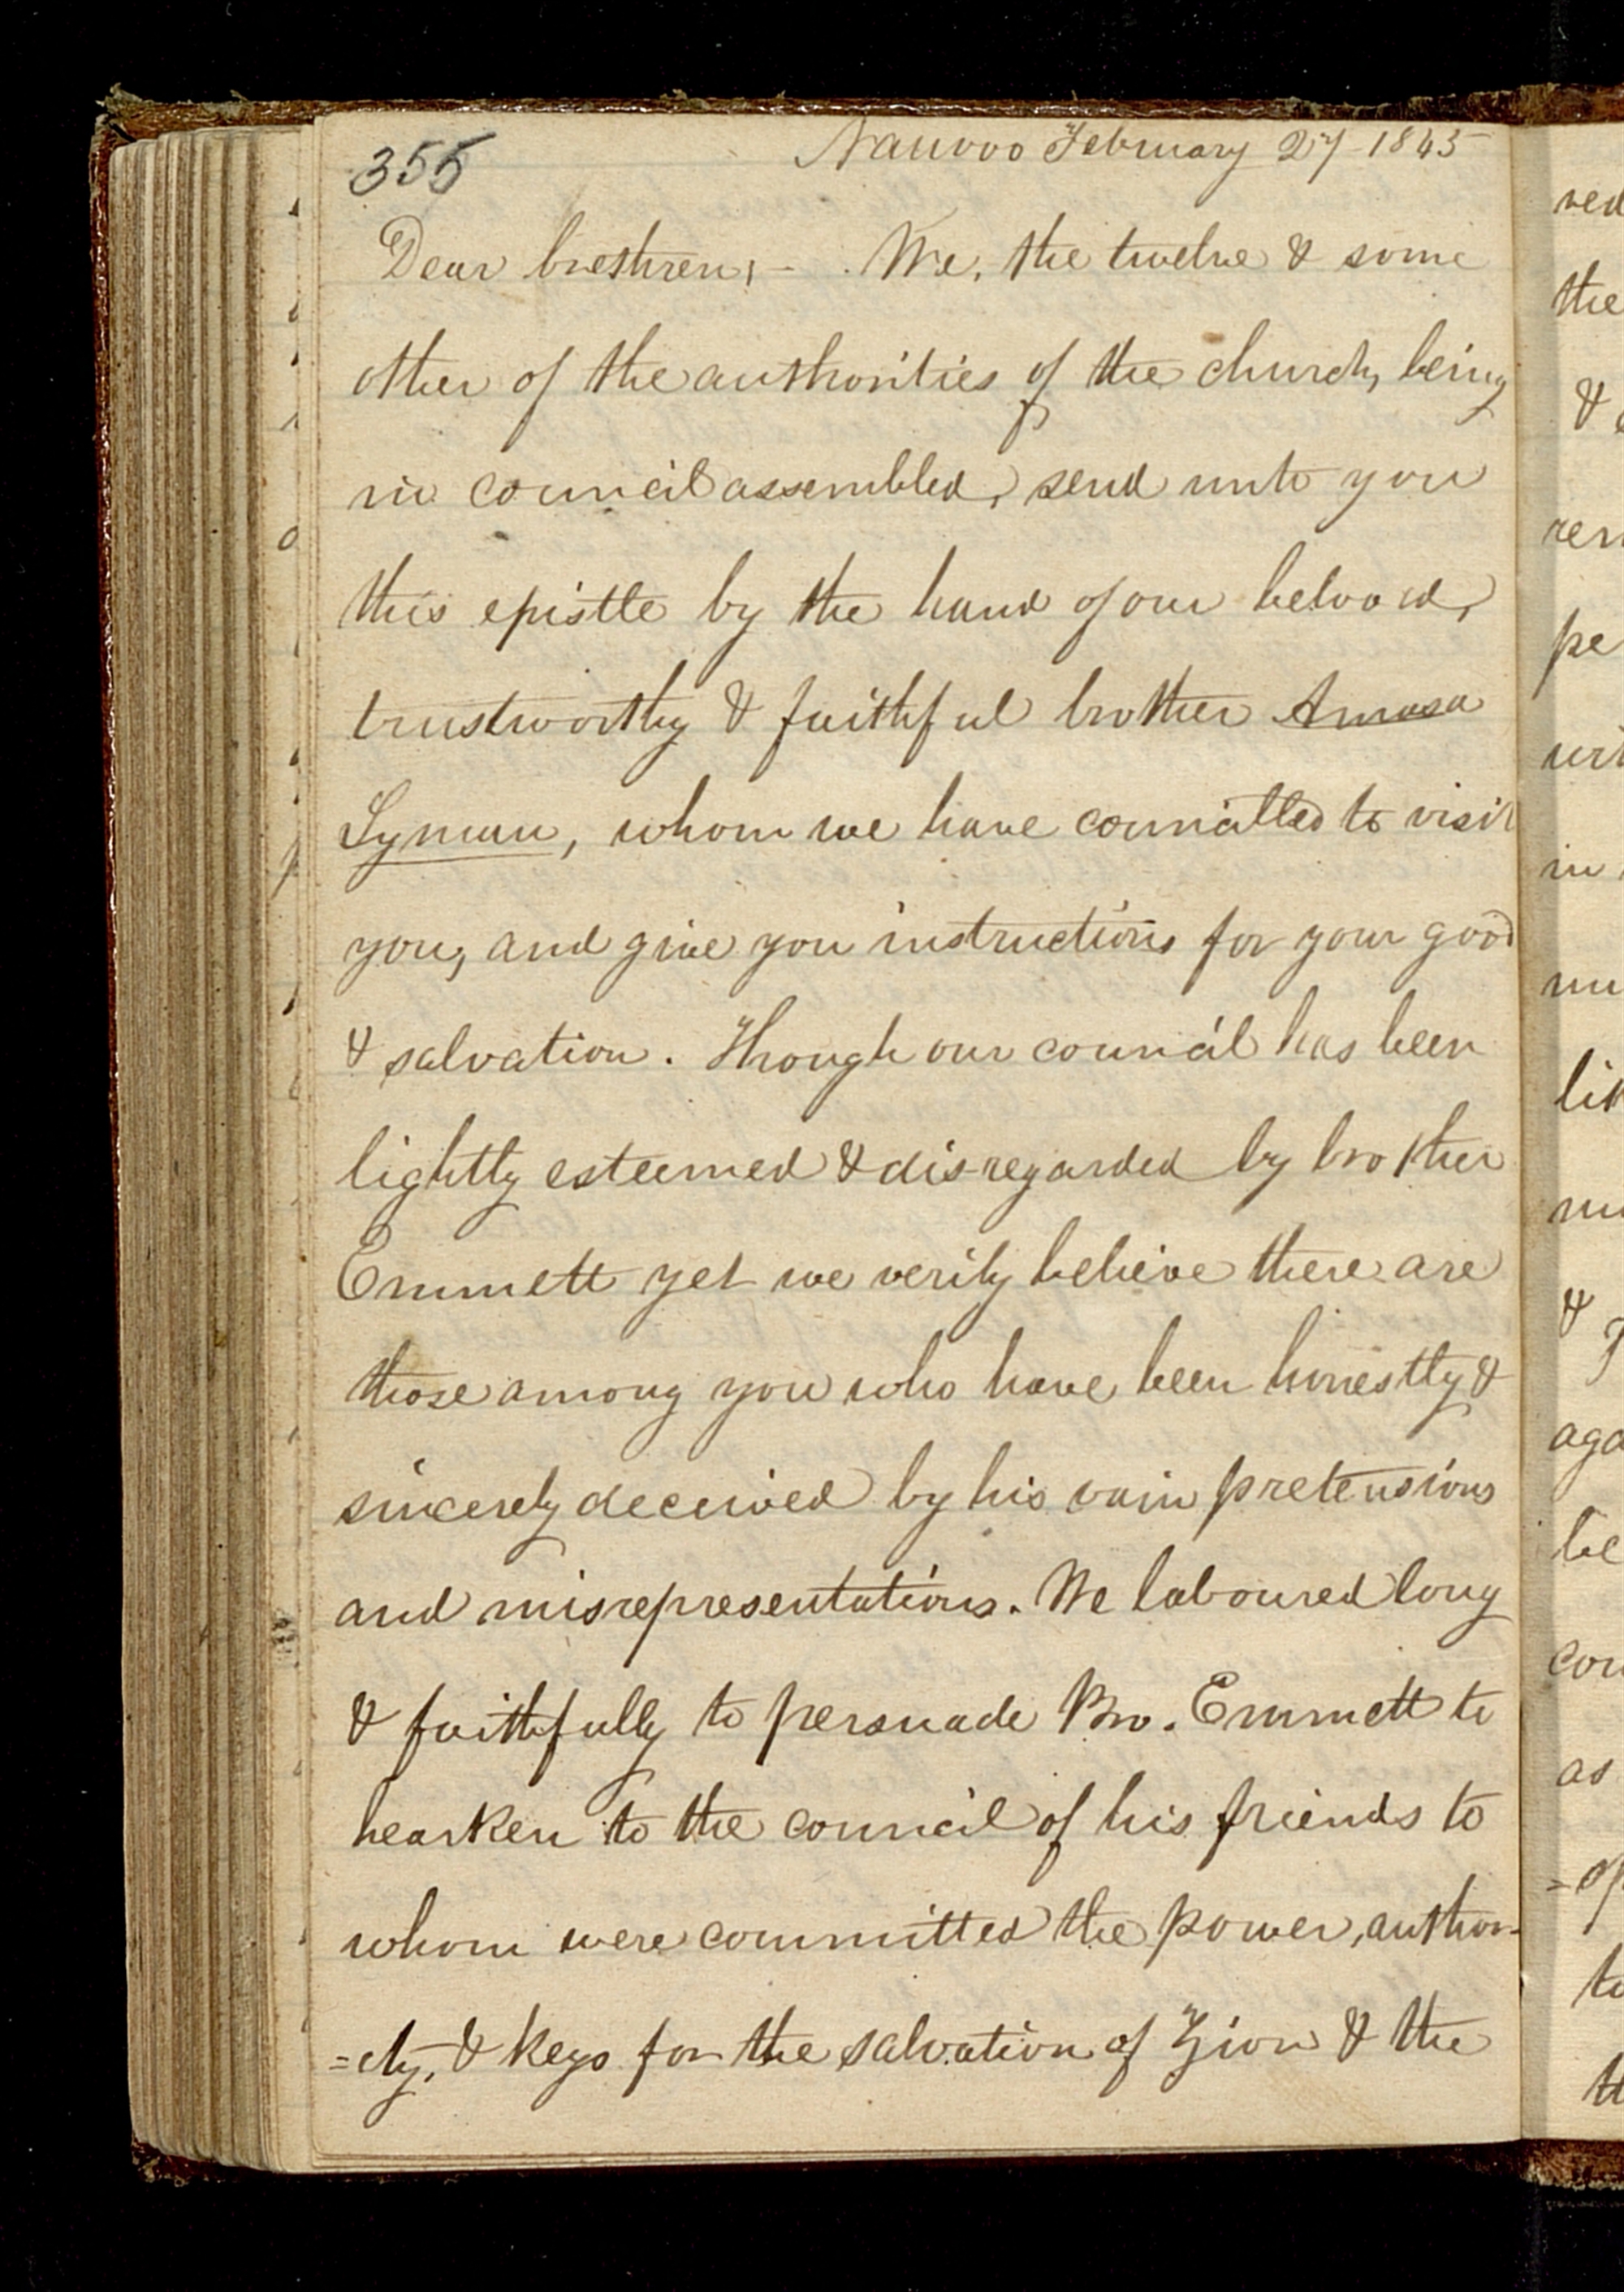 355
Nauvoo February 27 1845
Dear brethren, – We, the twelve & some
other of the authorities of the church, being
in council assembled, send unto you
this epistle by the hand of our belvoed,
trustworthy & faithful brother Amasa
Lyman, whom we have committed to visit
you, and give you instructions for your good
& salvation. Though our council has been
lightly esteemed & disregarded by brother
Emmett yet we verily believe there are
those among you who have been honestly &
sincerely deceived by his vain pretensions
and misrepresentations. We laboured long
& faithfully to persuade Bro. Emmett to
hearken to the council of his friends to
whom were committed the power, author-
=ity, & keys for the salvation of Zion & the